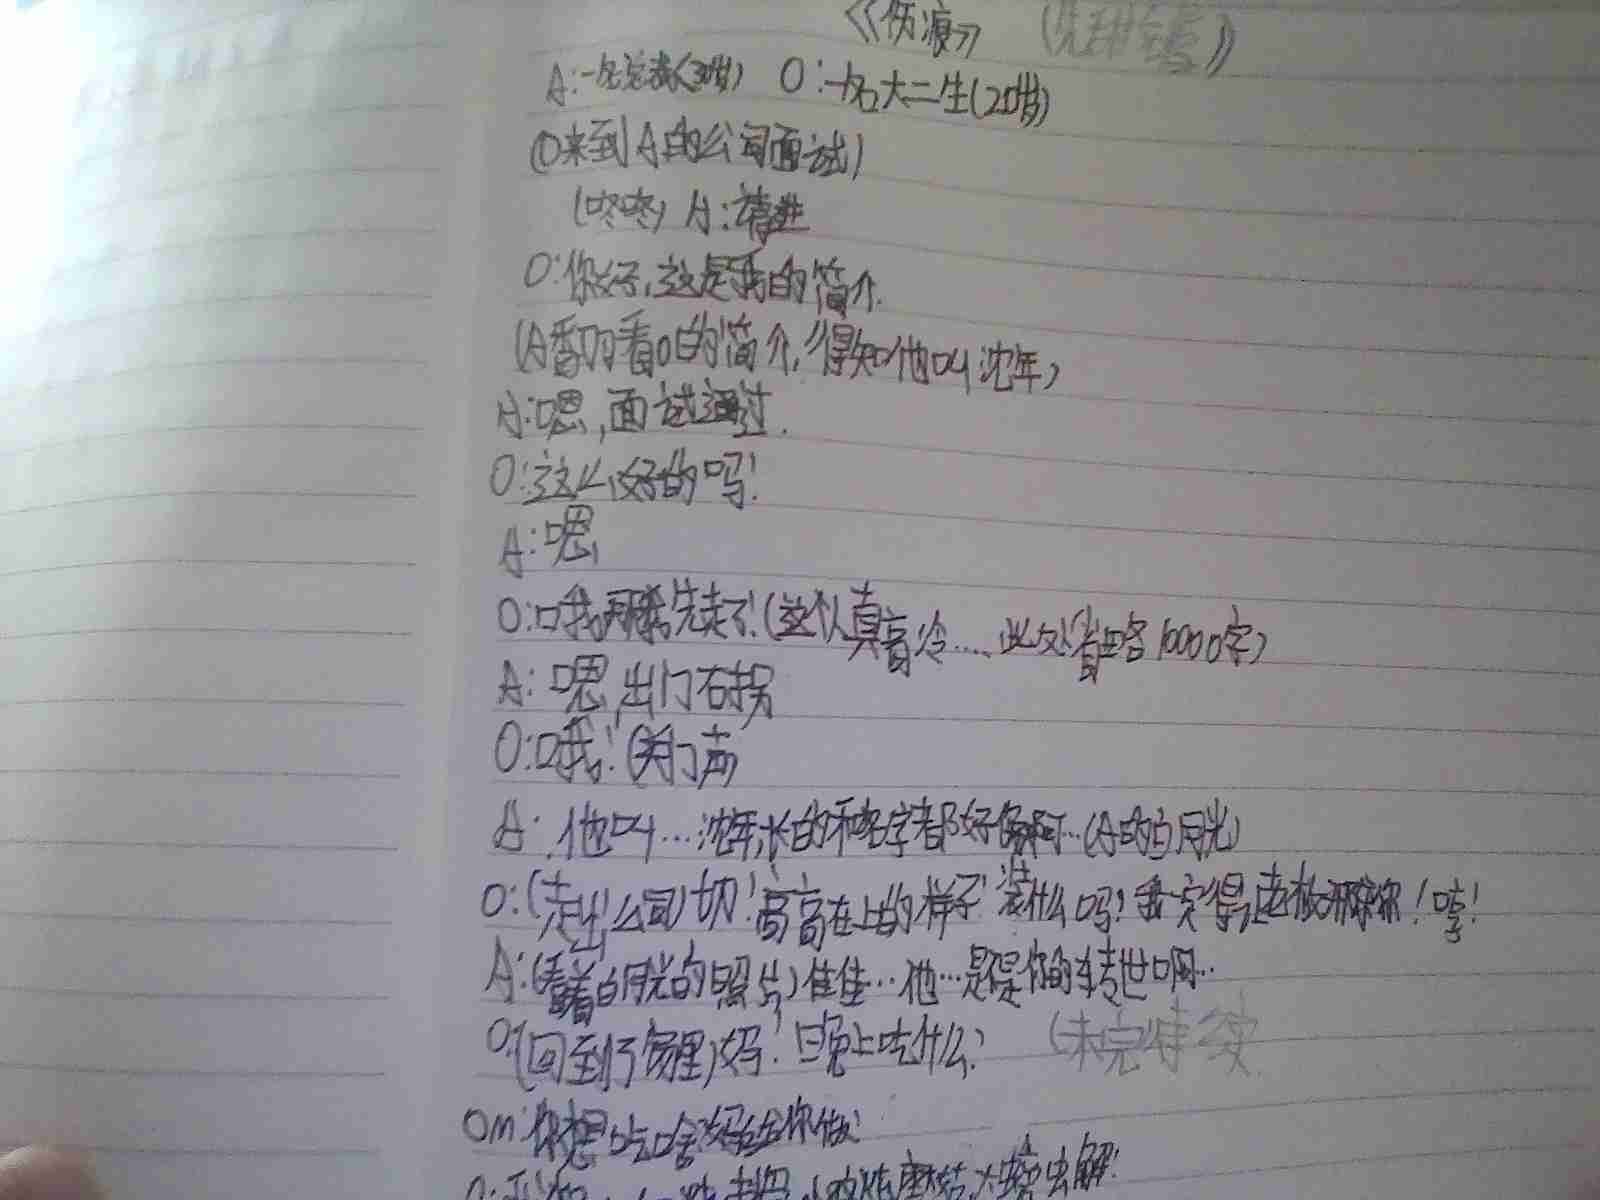 《伤痕》 (先甜后虐》
A:一名总裁(30岁) O:一名大二生(20岁)
(O来到A的公司面试)
(咚咚) A:请进
O:你好,这是我的简介.
(A翻看O的简介,得知他叫沈年)
A:嗯,面试通过.
O:这么好的吗!
A:嗯
O:哦 那我先走了!(这个人真高冷....此处省略10000字)
A:嗯,出门右拐
O:哦!(关门声
A:他叫…沈年,长的和名字都好像啊…(A的白月光)
O:(走出公司)切!高高在上的样子!装什么吗!我 ! 哼!
A:(看着白月光的照片)佳佳…他…是不是你的转世啊…
O:(回到了 里)妈!晚上吃什么? (未完待续
Om:你想吃啥妈给你做!
O: 蘑菇,大螃蟹!